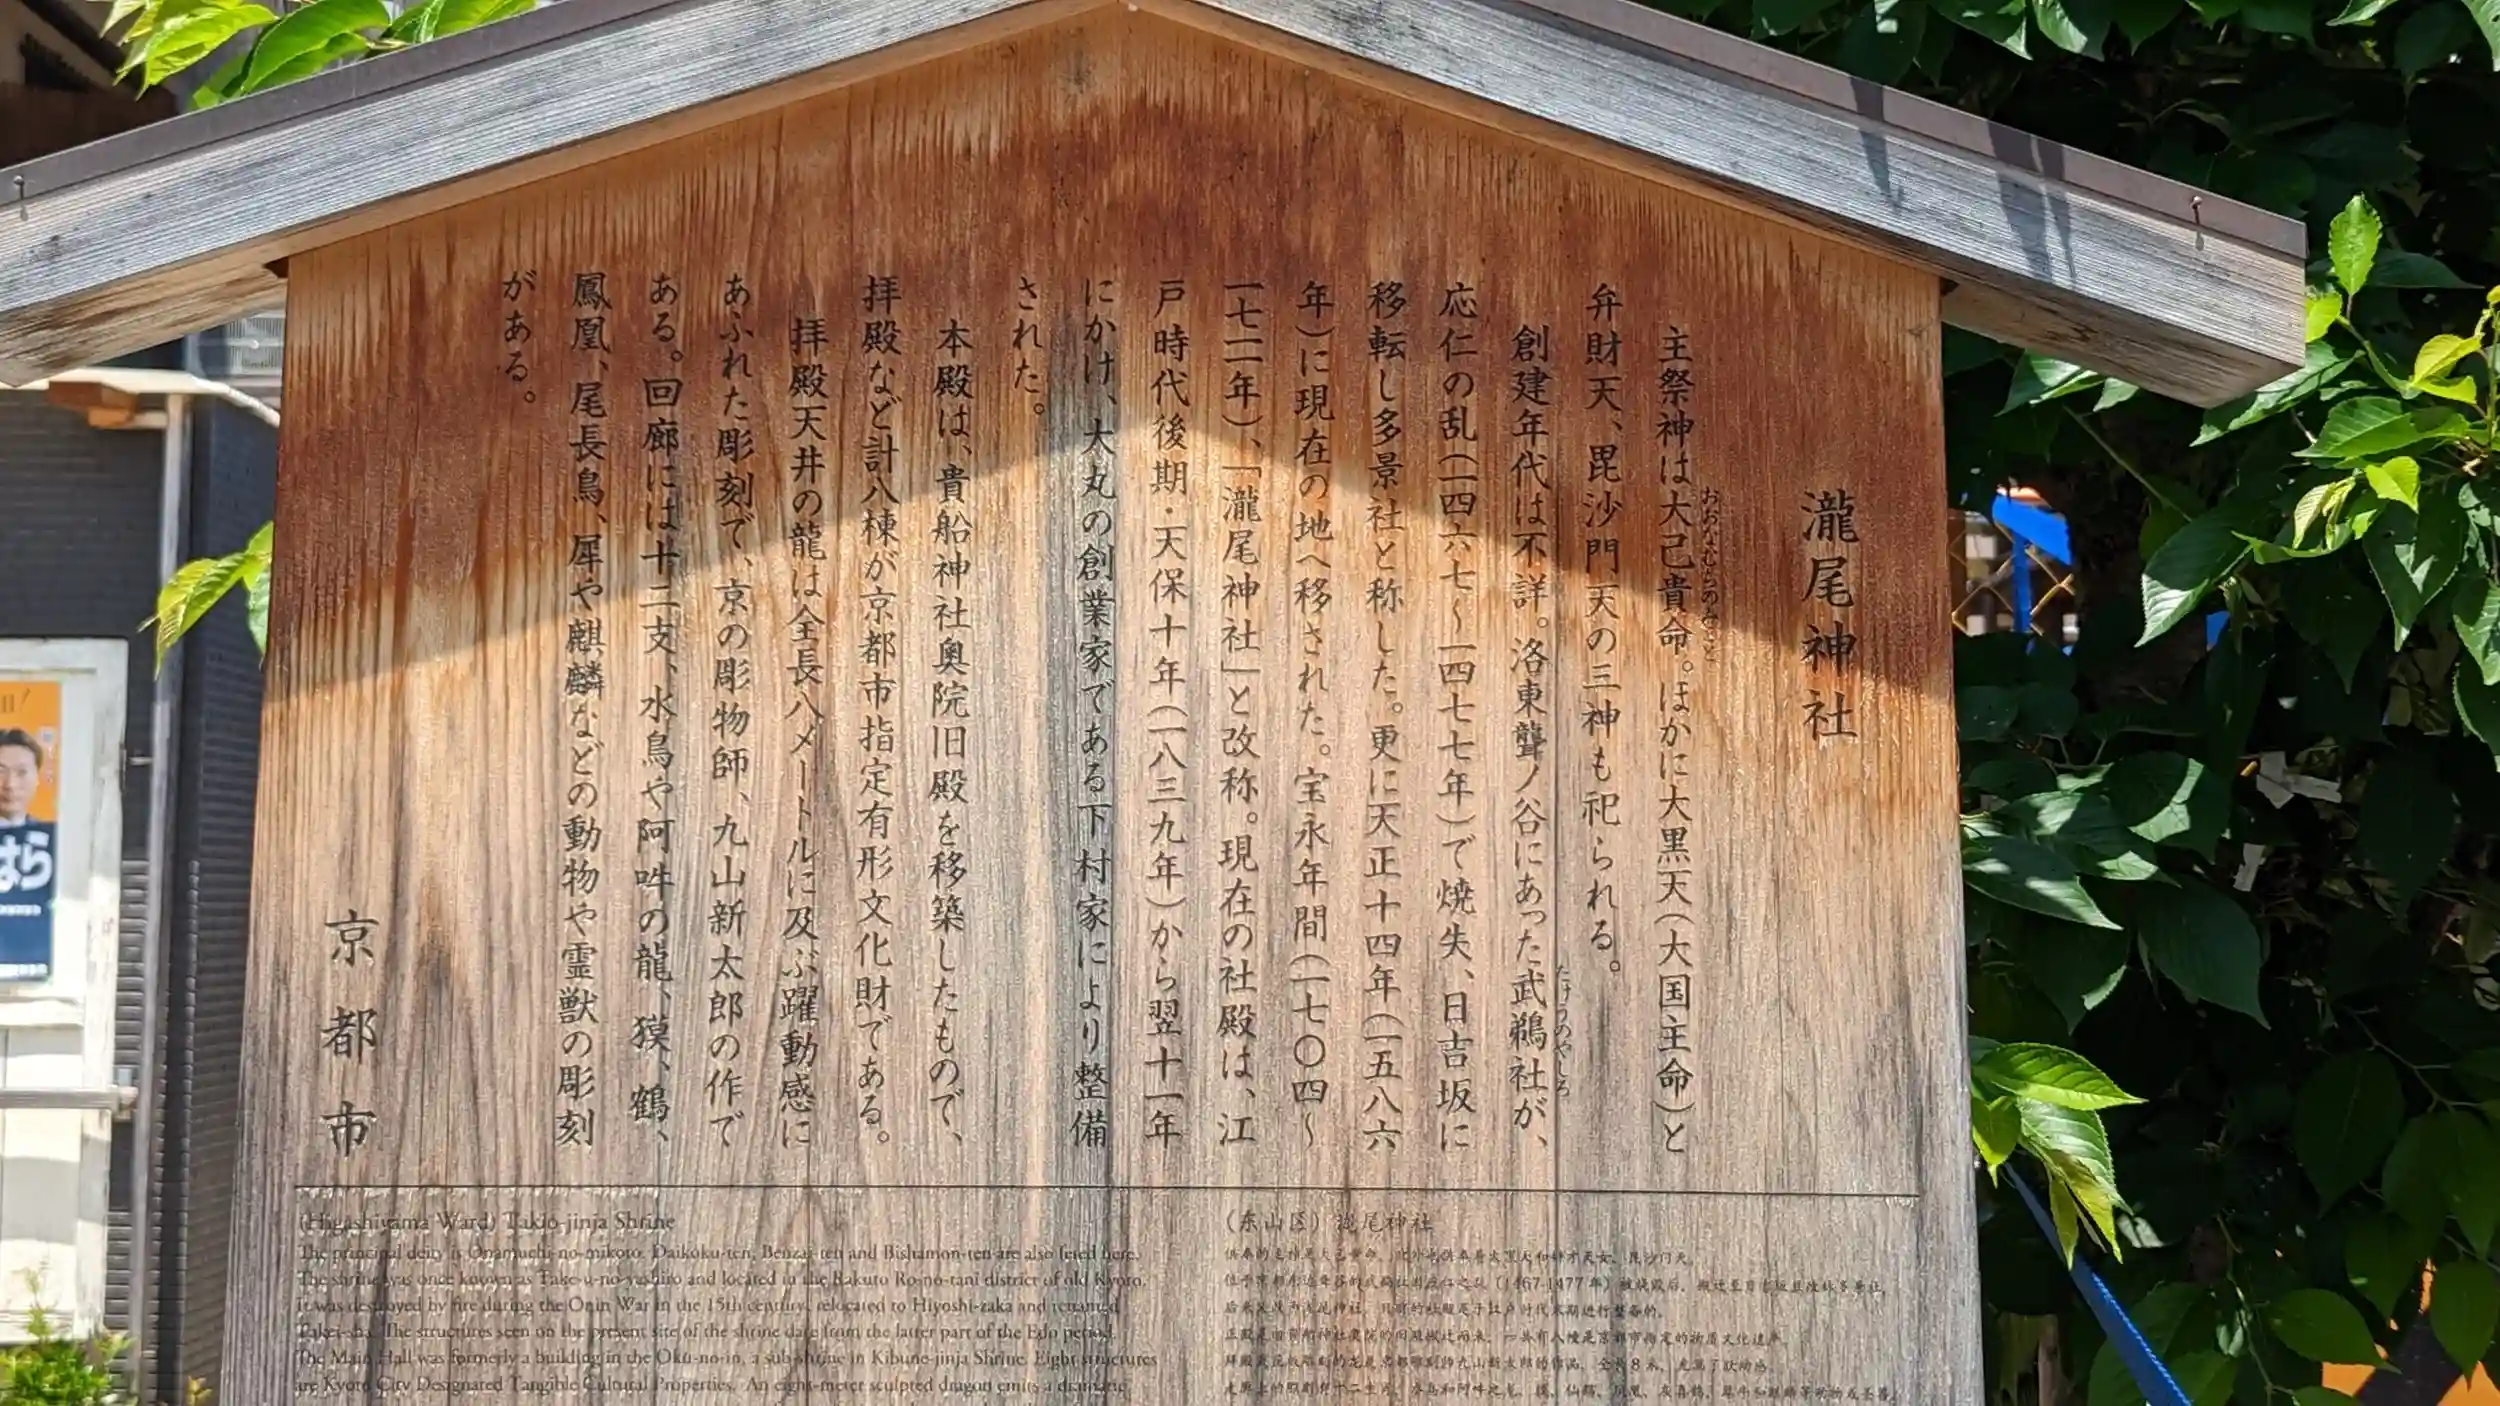 瀧尾神社
主祭神は大己貴命。ほかに大黒天(大国主命)と
おおなむちのみこと
弁財天、毘沙門天の三神も祀られる。
創建年代は不詳。洛東聾ノ谷にあった武鵜社が、
たけうのやしろ
応仁の乱(一四六七〜一四七七年)で焼失、日吉坂に
移転し多景社と称した。更に天正十四年(一五八六
年)に現在の地へ移された。宝永年間(一七〇四〜
一七一一年)、「瀧尾神社」と改称。現在の社殿は、江
戸時代後期・天保十年(一八三九年)から翌十一年
にかけ、大丸の創業家である下村家により整備
された。
本殿は、貴船神社奥院旧殿を移築したもので、
拝殿など計八棟が京都市指定有形文化財である。
拝殿天井の龍は全長八メートルに及ぶ躍動感に
あふれた彫刻で、京の彫物師、九山新太郎の作で
ある。回廊には十二支、水鳥や阿吽の龍、獏、鶴、
鳳凰、尾長鳥、犀や麒麟などの動物や霊獣の彫刻
がある。
京都市
(Higashiyama Ward) Takio-jinja Shrine
The principal deity is Onamuchi-no-mikoto. Daikoku-ten, Benzai-ten and Bishamon-ten are also feted here.
The shrine was once known as Take-u-no-yashiro and located in the Rakuto Ro-no-tani district of old Kyoto.
It was destroyed by fire during the Onin War in the 15th century, relocated to Hiyoshi-zaka and renamed
Takei-sha. The structures seen on the present site of the shrine date from the latter part of the Edo period.
The Main Hall was formerly a building in the Oku-no-in, a sub-shrine in Kibune-jinja Shrine. Eight structures
are Kyoto City Designated Tangible Cultural Properties. An eight-meter sculpted dragon emits a dramatic
(东山区) 瀧尾神社
はら